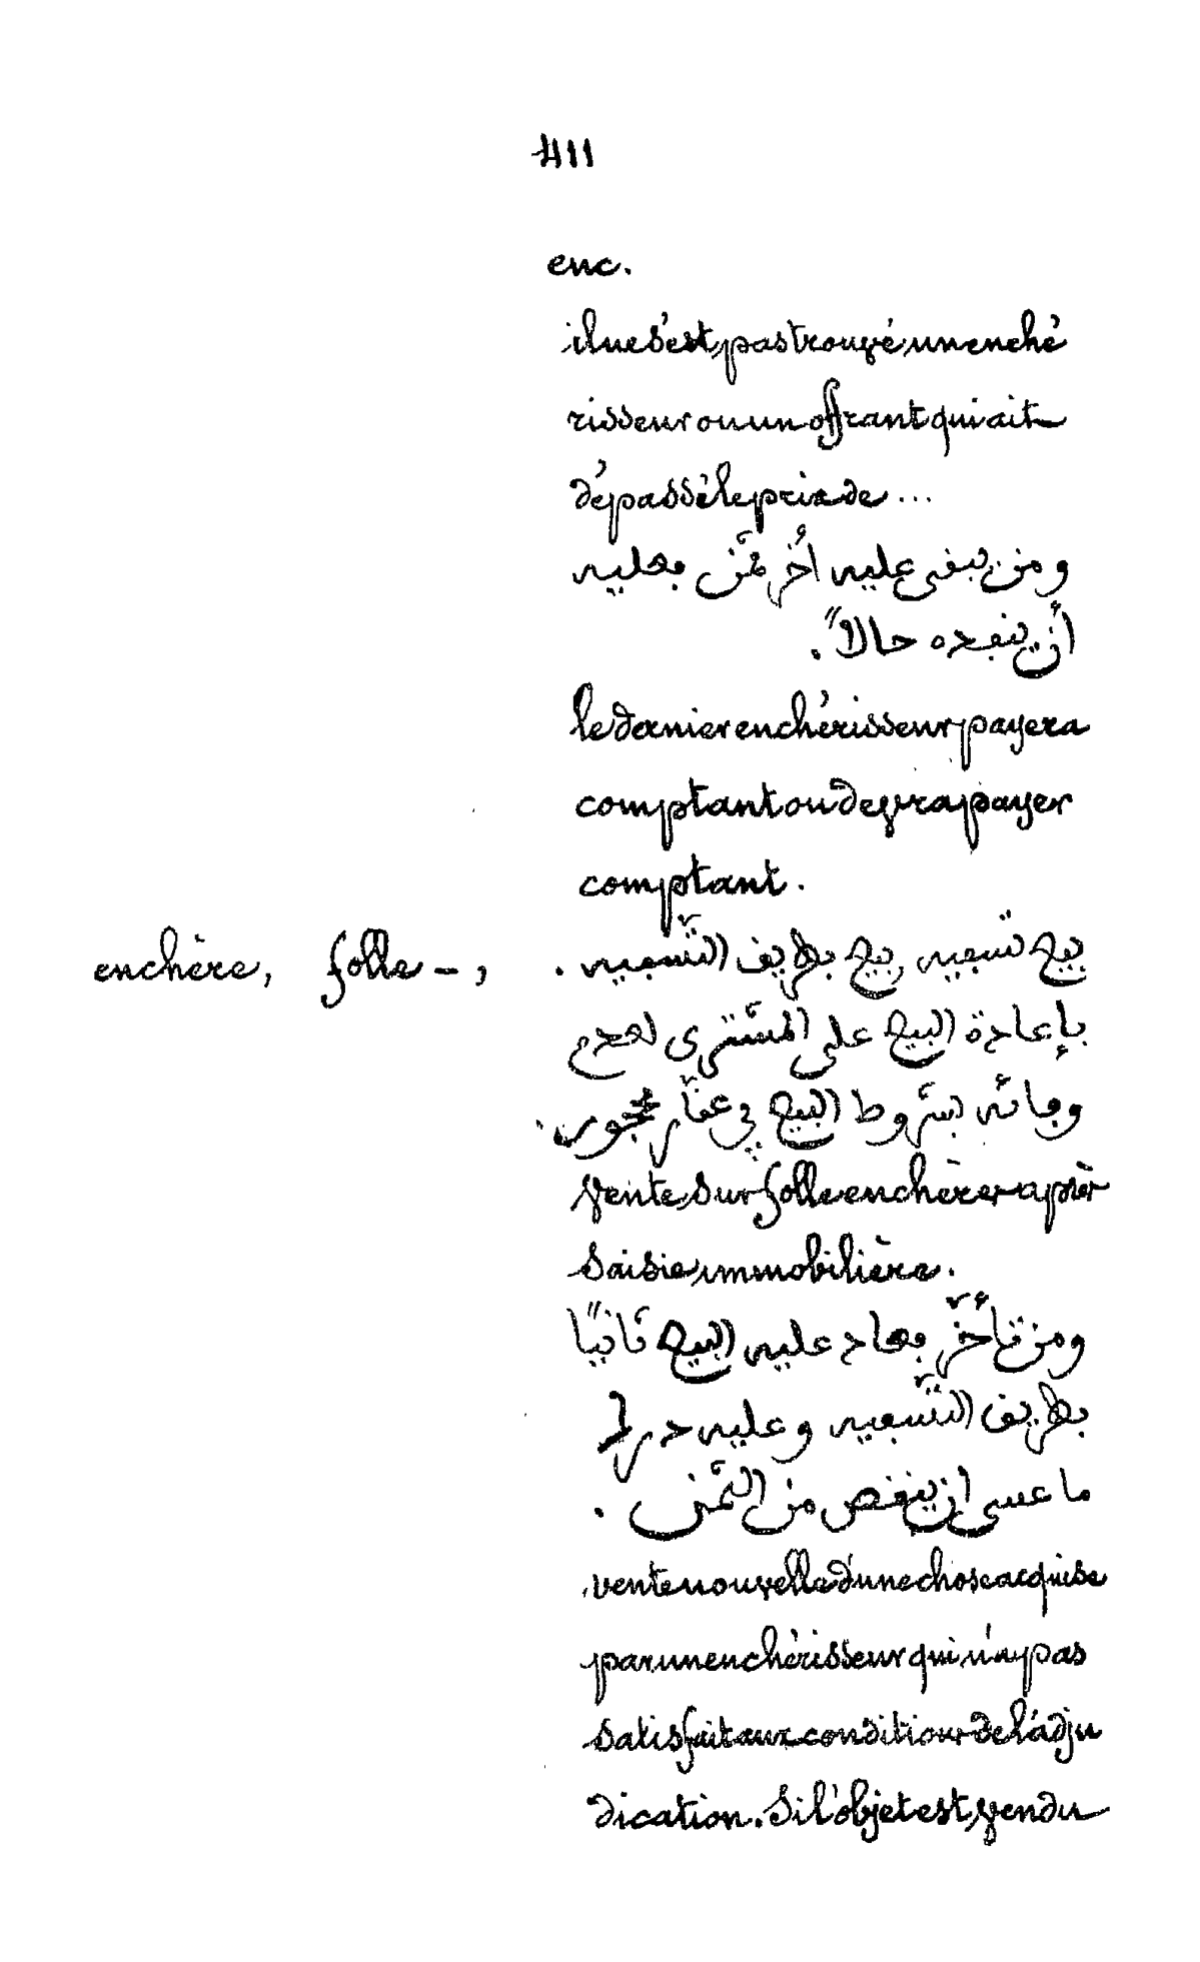 411
enc.
il ne s'est pas trouvé un enché
risseur ou un offrant qui ait
dépassé le prix de ...
ومن يبقى عليه أخر ثمن فعليه
أن ينقده حالاً.
le dernier enchérisseur payera
comptant ou devra payer
comptant.
enchère, folle –, بيع تسعيه, بيع بطريق التّسعيه.
بإعادة البيع على المشترى لعدم
وفائه بشروط البيع في عقّار محجور.
vente sur folle enchère après
saisie immobilière.
ومن تأخّر فعاد عليه البيع ثانيًا
بطريق التّسعيه وعليه درك
ما عسى ان ينقص من الثمن.
vente nouvelle d'une chose acquise
par un enchérisseur qui n'a pas
satisfait aux conditions de l'adju
dication. Si l'objet est vendu